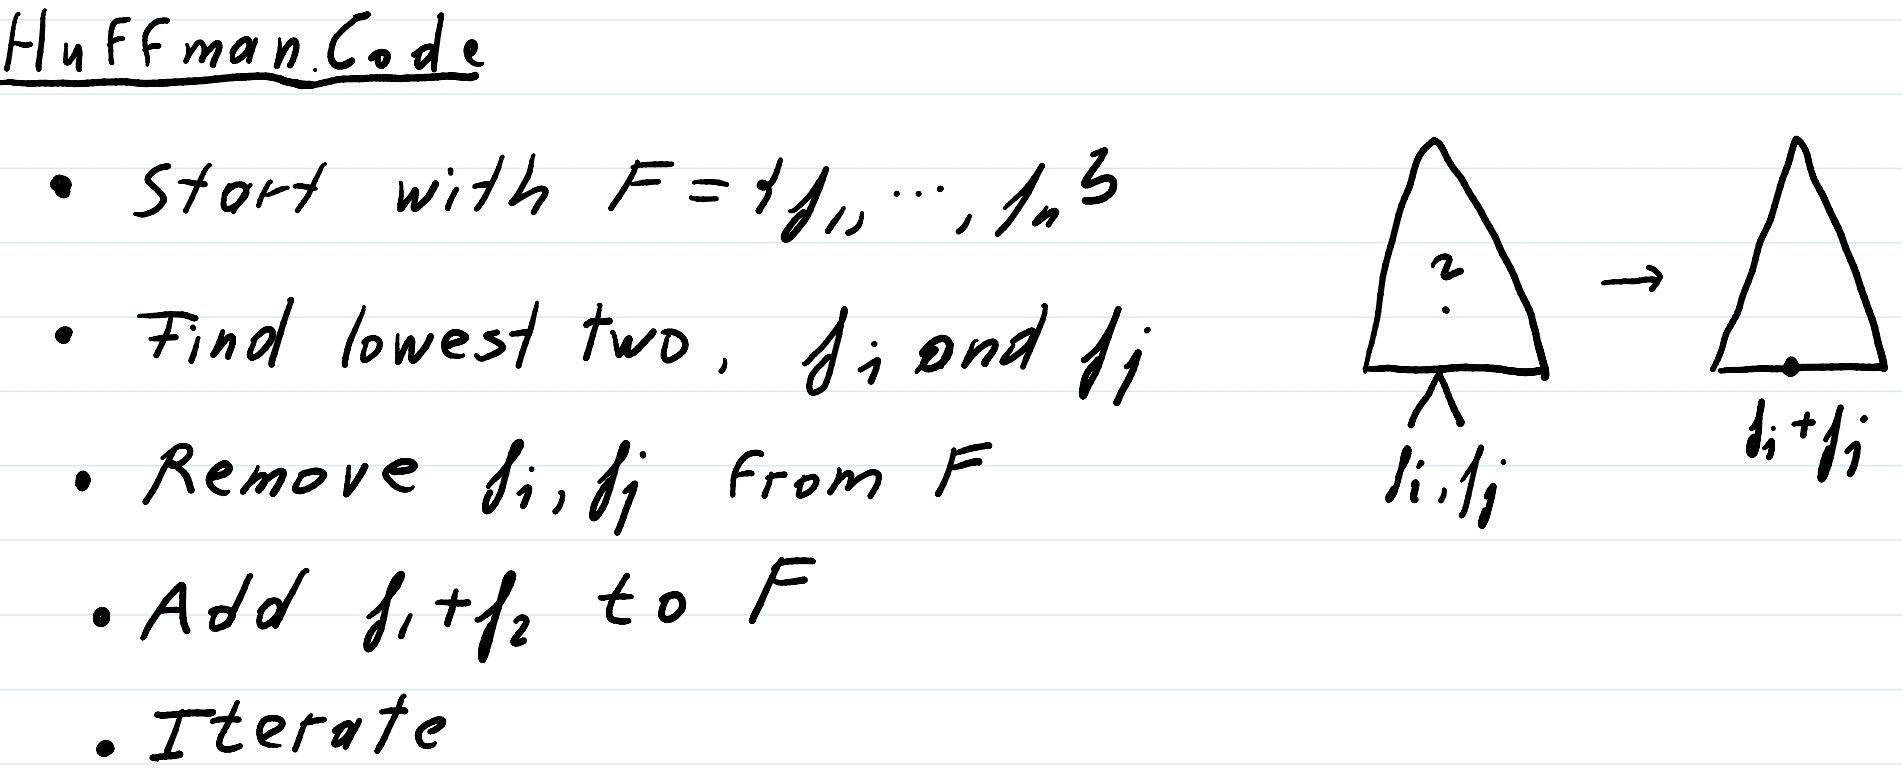 Huffman Code
• Start with F = {f₁, ..., fₙ}
• Find lowest two, fᵢ and fⱼ
• Remove fᵢ, fⱼ from F
• Add f₁+f₂ to F
• Iterate
?
→
fᵢ, fⱼ
fᵢ+fⱼ